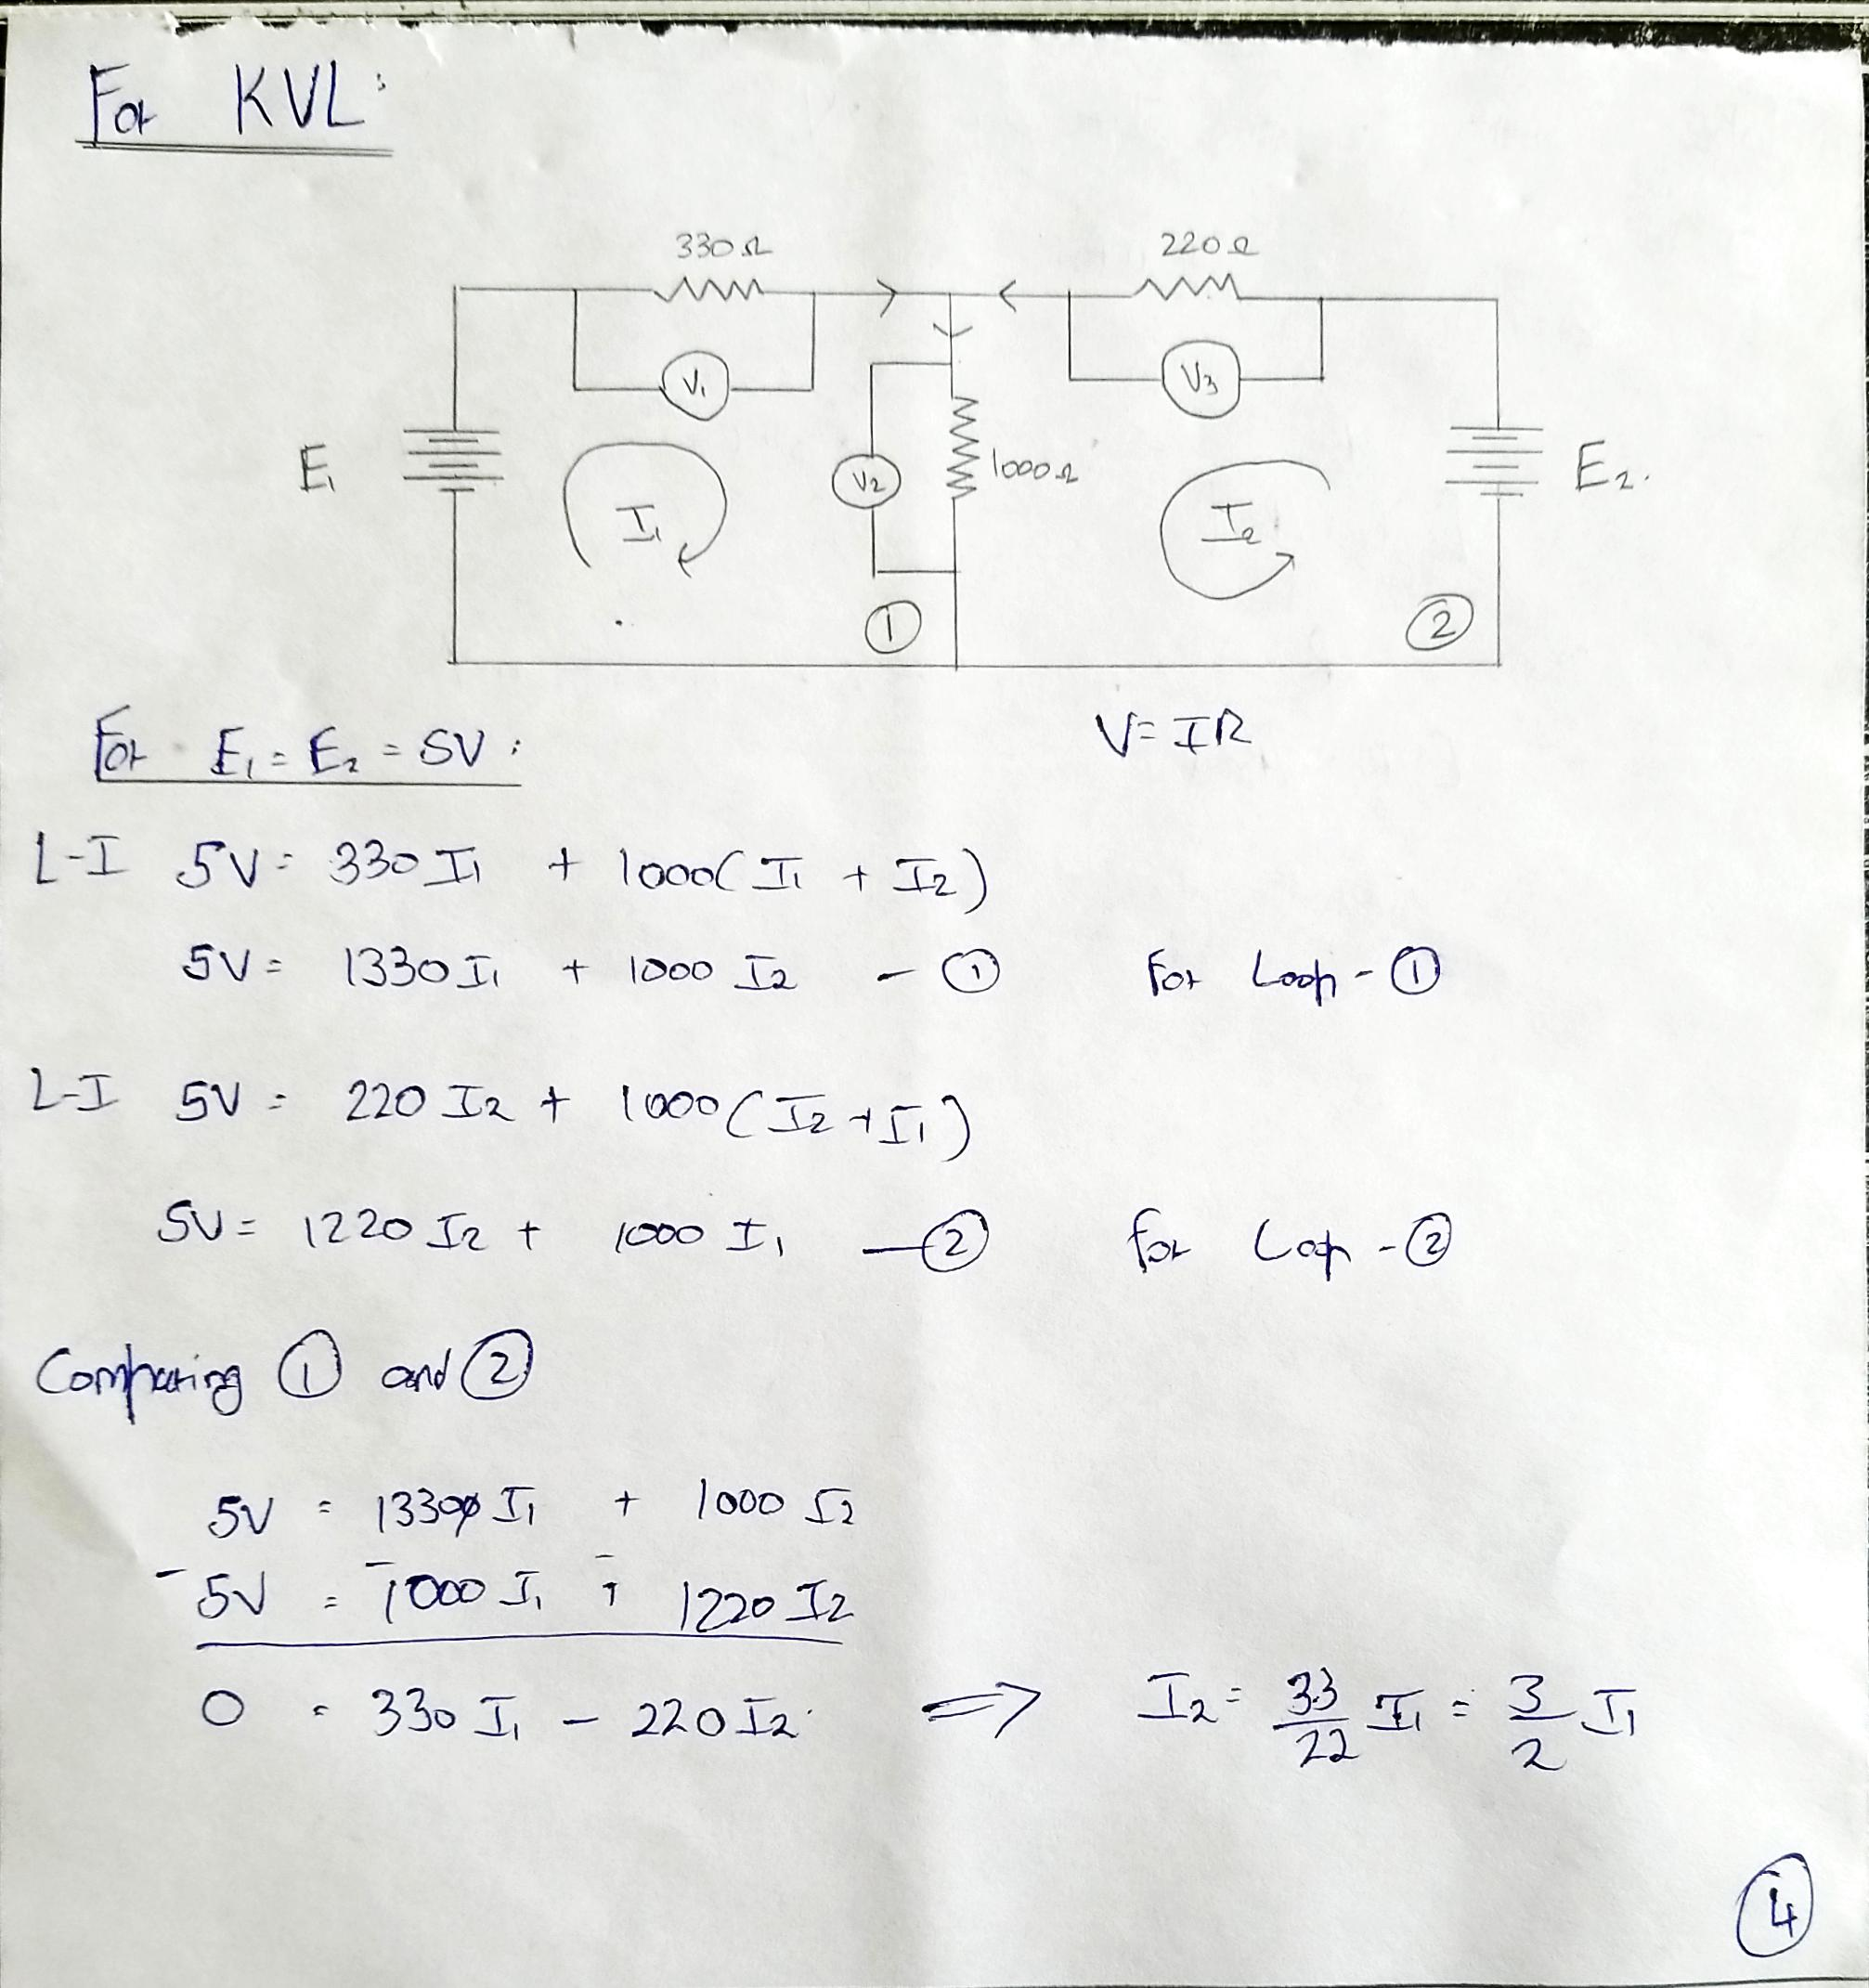 For KVL:
330Ω 220Ω
V1 V3
E1 V2 1000Ω E2.
I1 I2
① ②
For E1 = E2 = 5V :
V = IR
L-I 5V = 330 I1 + 1000( I1 + I2)
5V = 1330 I1 + 1000 I2 - ① For Loop - ①
L-I 5V = 220 I2 + 1000 ( I2 + I1 )
5V = 1220 I2 + 1000 I1 — ② for Loop - ②
Comparing ① and ②
5V = 1330 I1 + 1000 I2
- 5V = - 1000 I1 + - 1220 I2
0 = 330 I1 - 220 I2 ⇒ I2 = 33/22 I1 = 3/2 I1
④